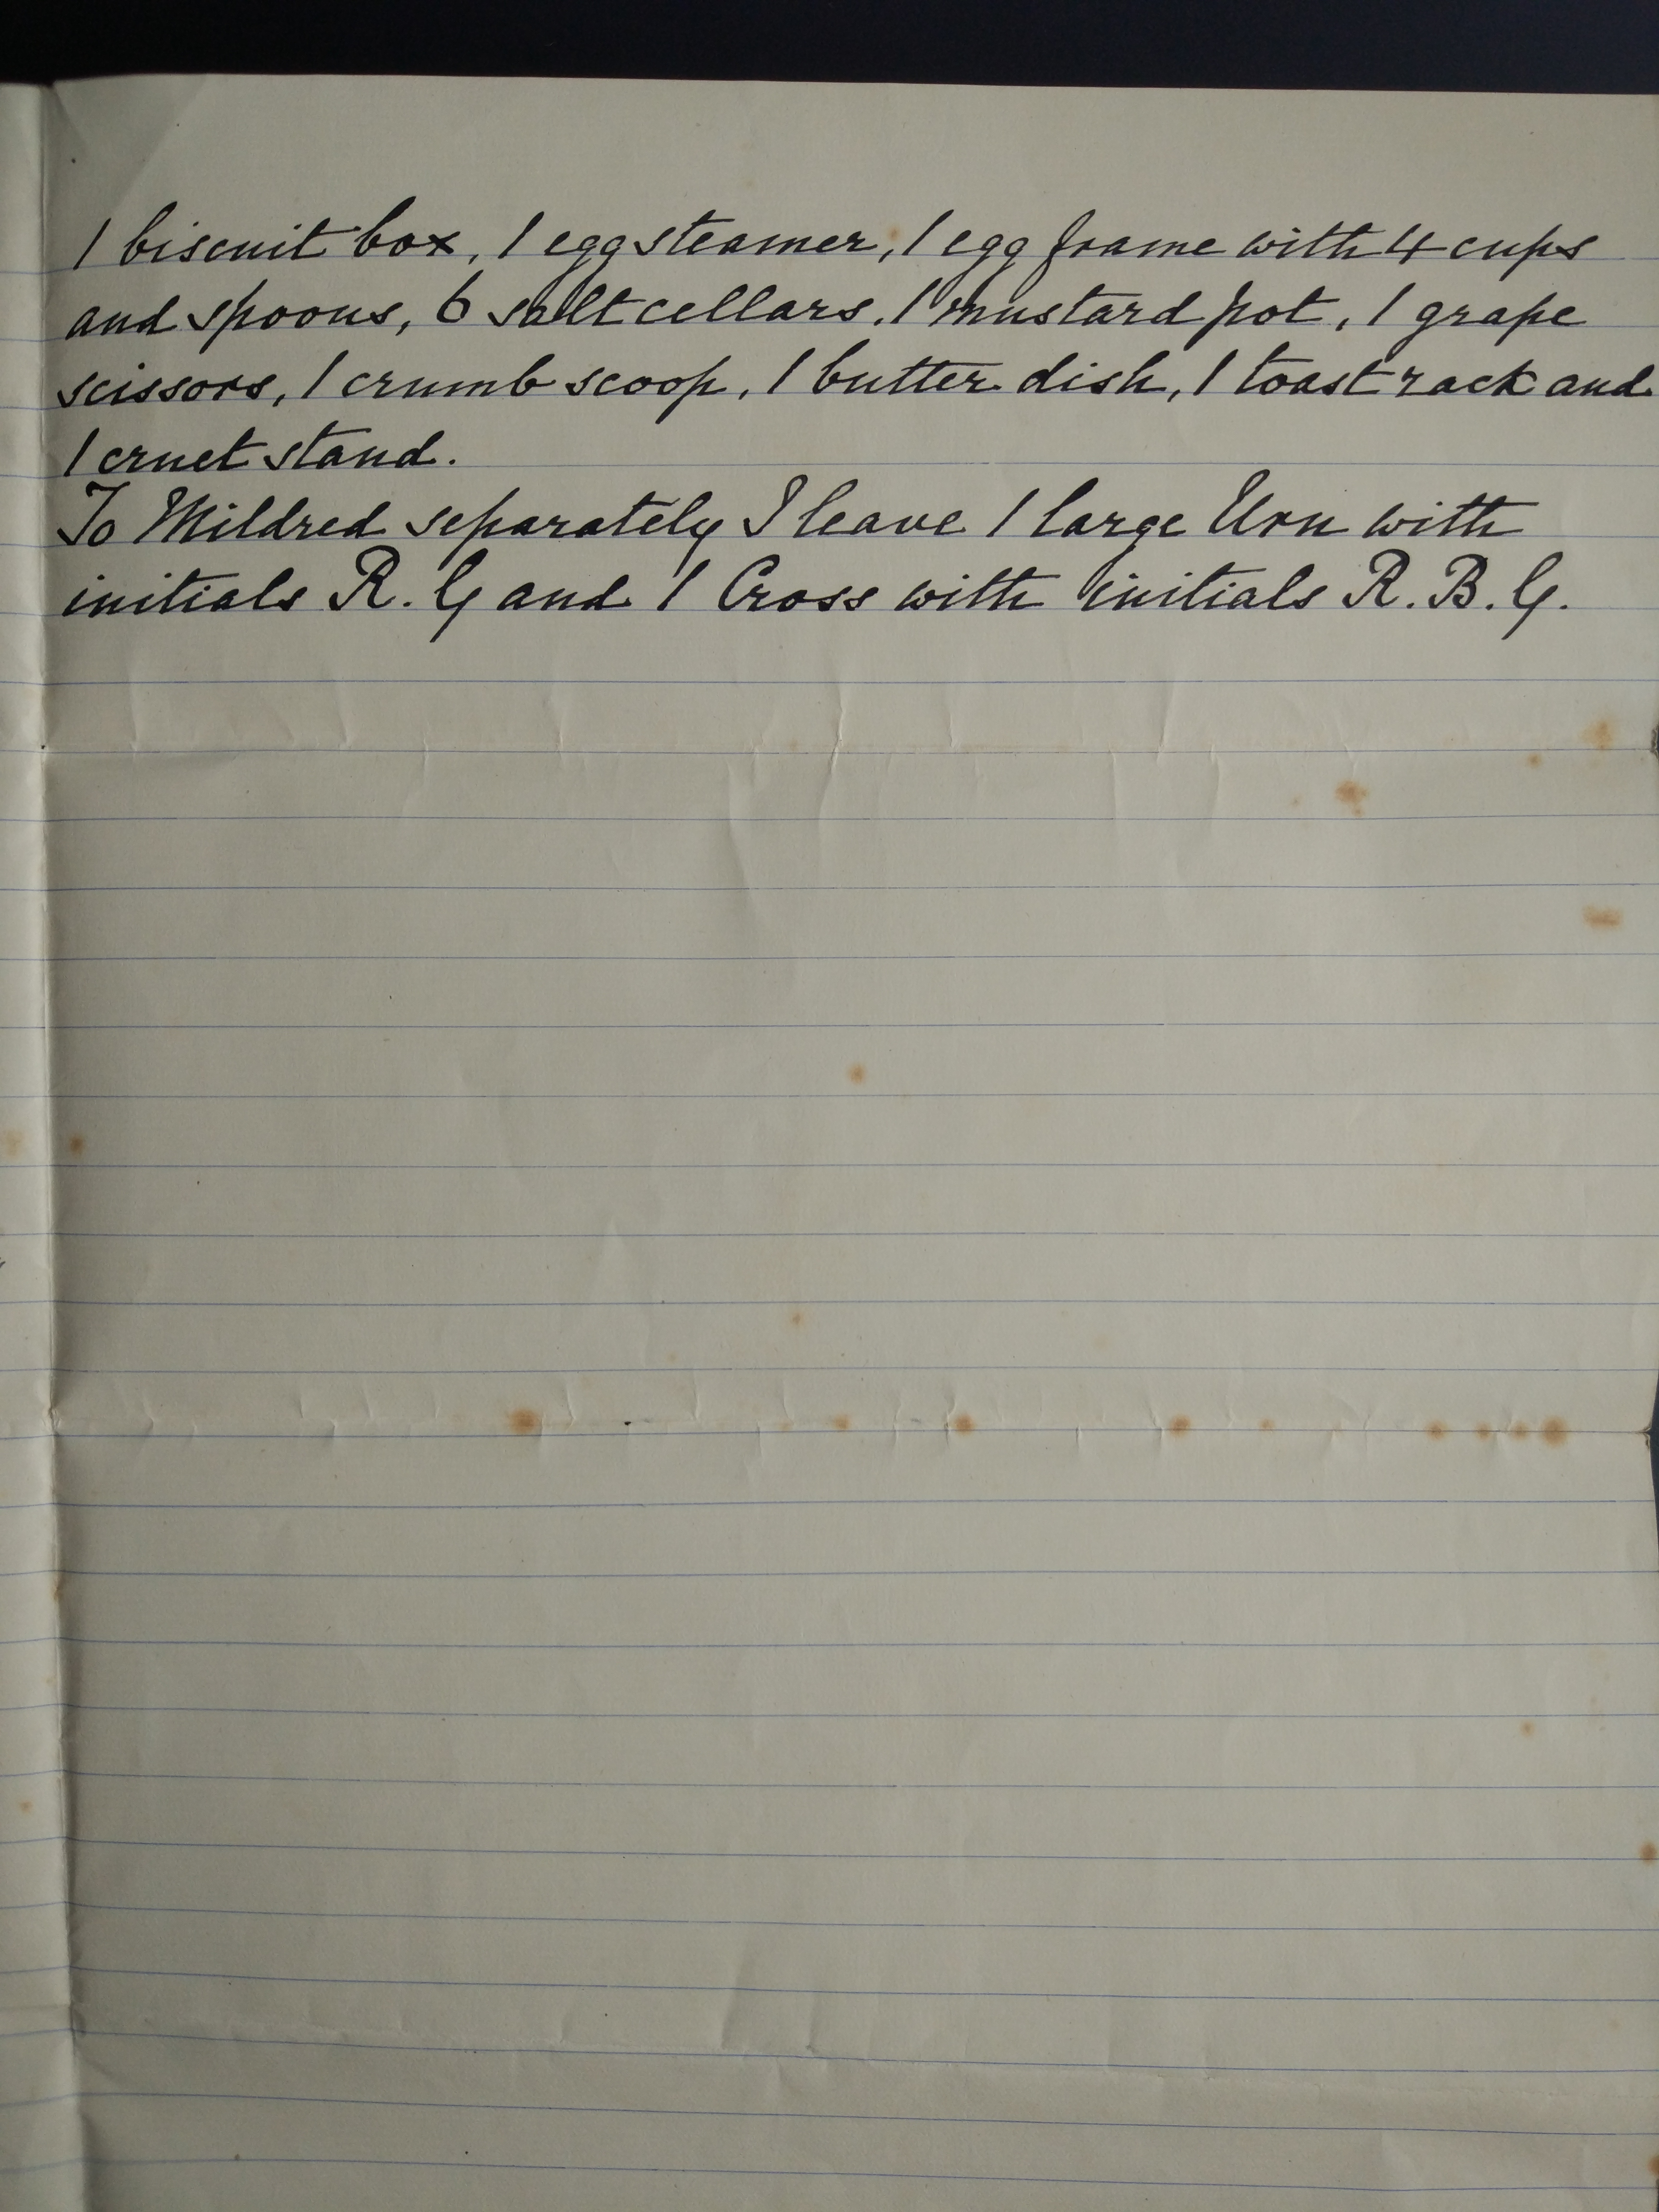 1 biscuit box, 1 egg steamer, 1 egg frame with 4 cups
and spoons, 6 salt cellars. 1 mustard pot, 1 grape
scissors, 1 crumb scoop, 1 butter dish, 1 toast rack and
1 cruet stand.
To Mildred separately I leave 1 large Urn with
initials R. G and 1 Cross with initials R. B. G.